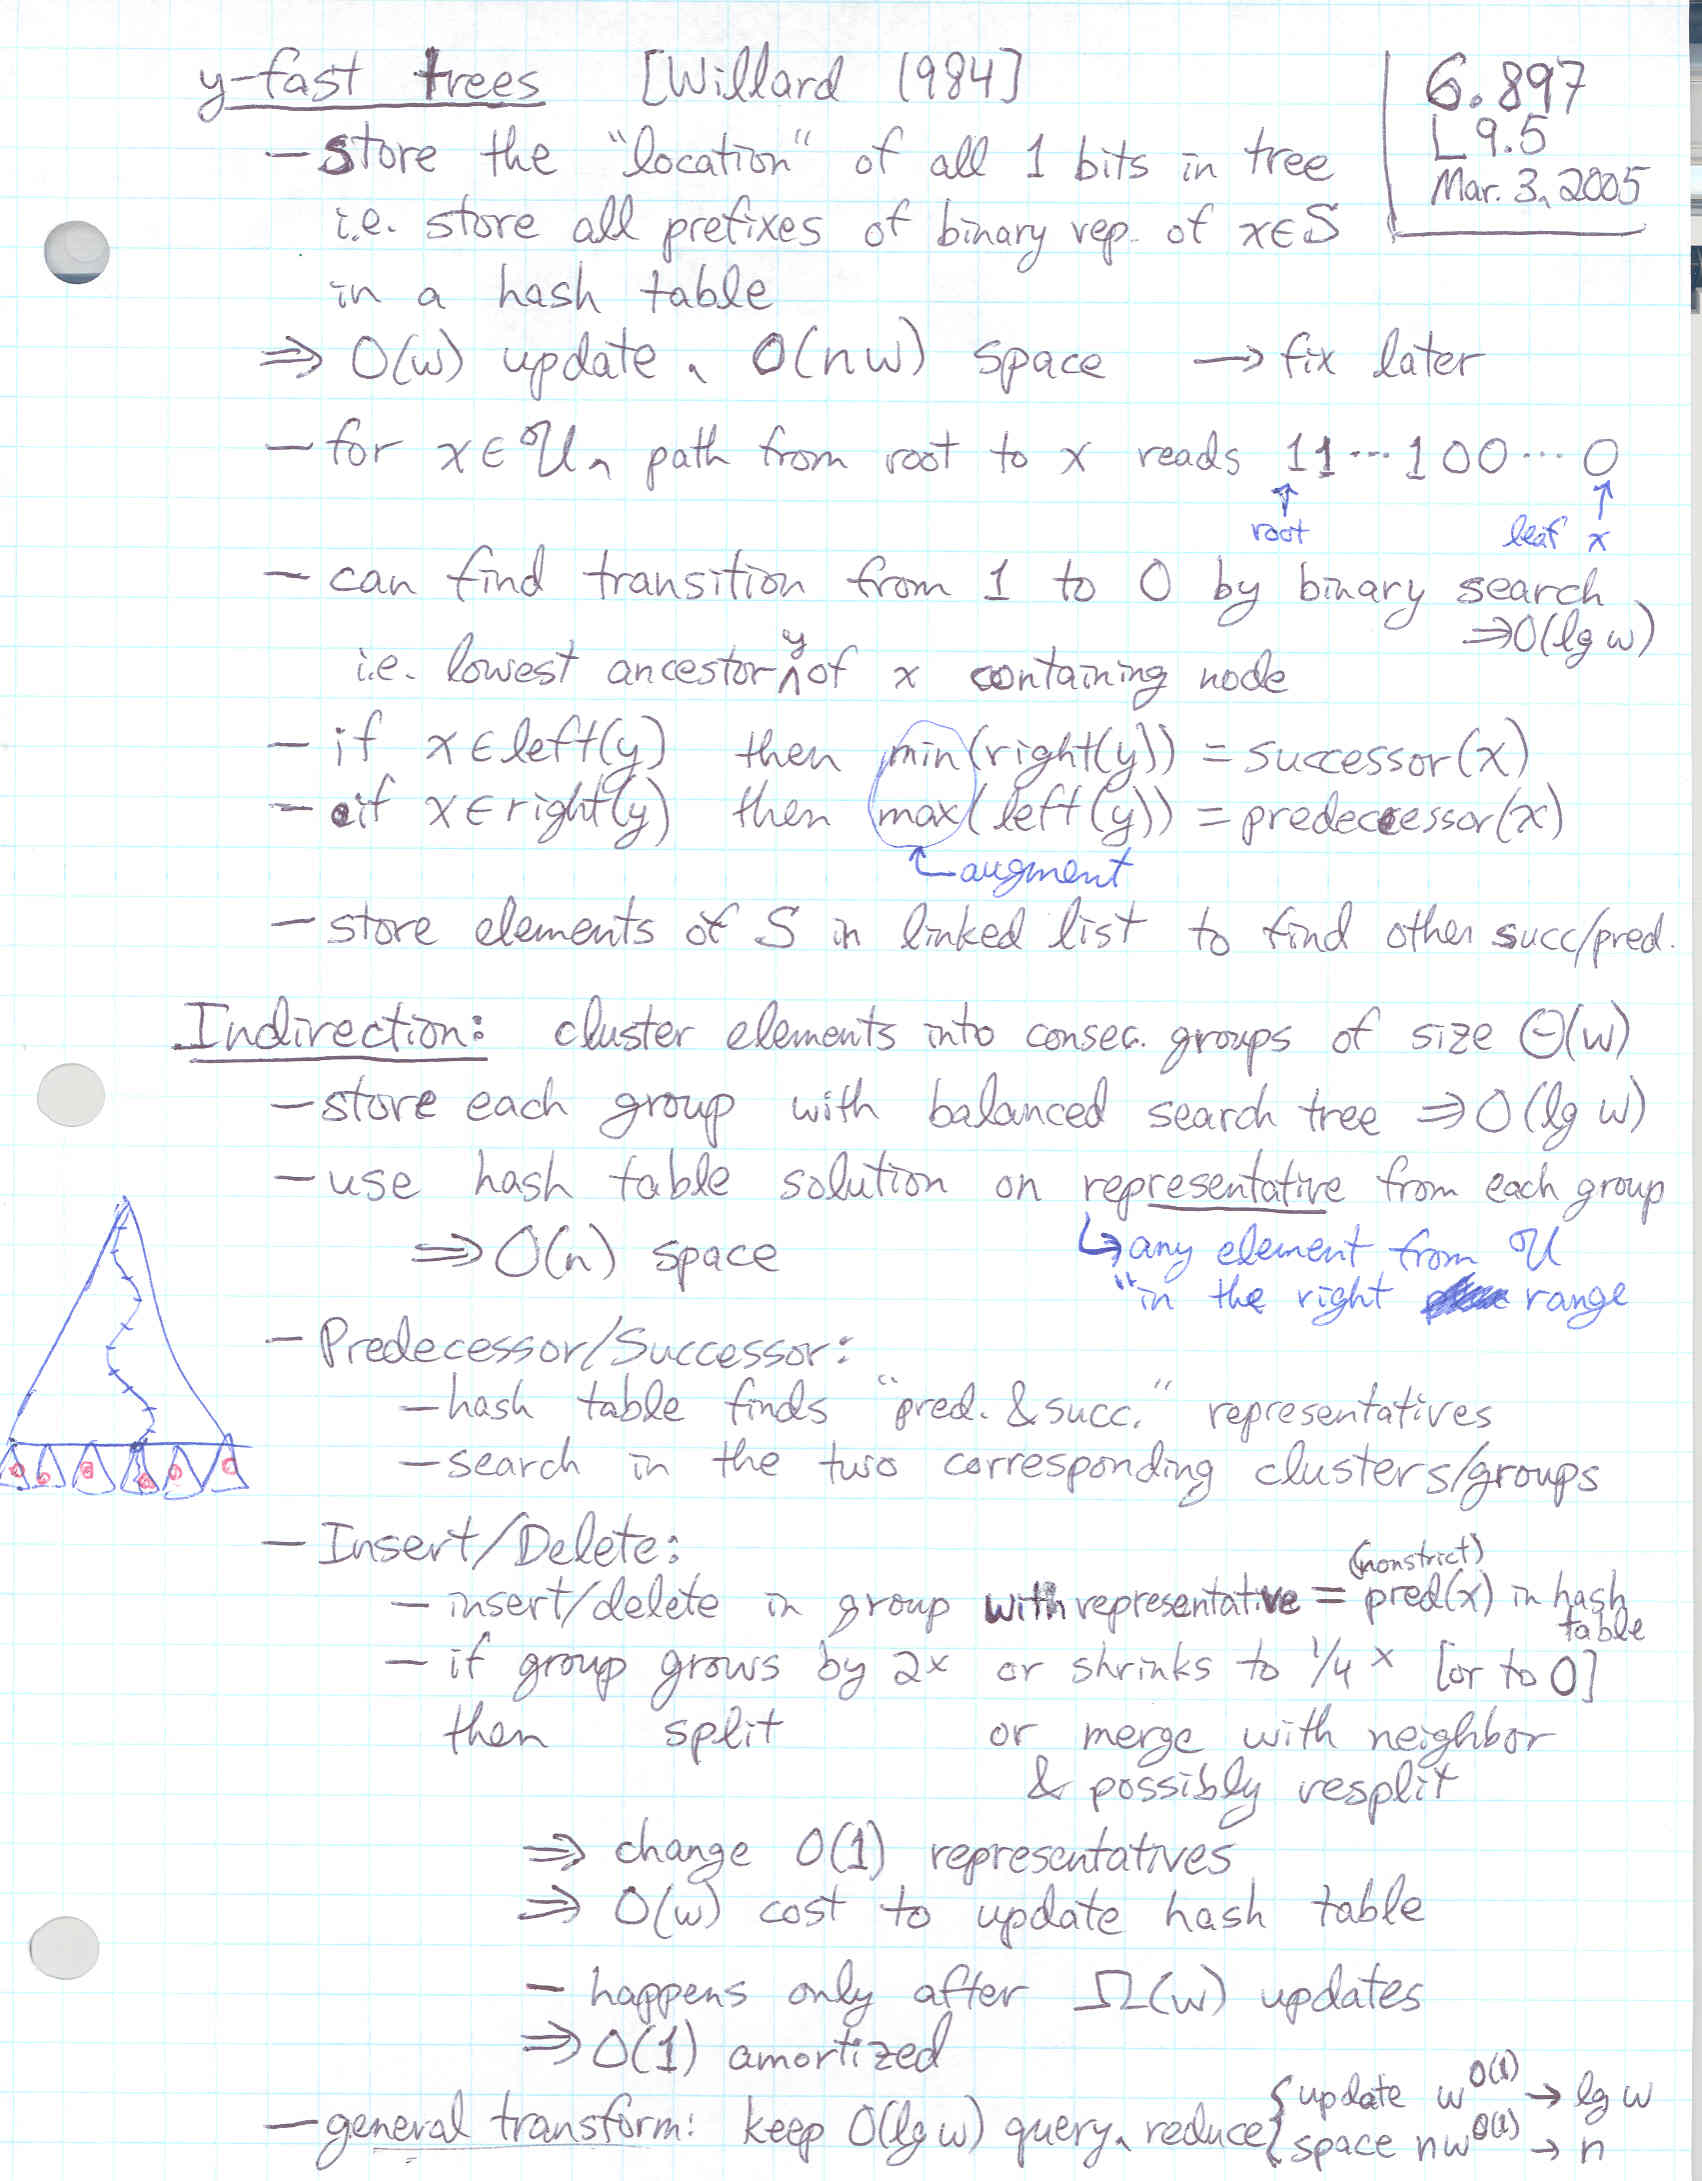 y-fast trees [Willard 1984]
6.897
L9.5
Mar. 3, 2005
– store the "location" of all 1 bits in tree
i.e. store all prefixes of binary rep. of x∈S
in a hash table
⇒ O(w) update, O(nw) space → fix later
– for x∈U, path from root to x reads 11···100···0
↑ root
↑ leaf x
– can find transition from 1 to 0 by binary search
⇒O(lg w)
i.e. lowest ancestor y of x containing node
– if x∈left(y) then min(right(y)) = successor(x)
– if x∈right(y) then max(left(y)) = predecessor(x)
augment
– store elements of S in linked list to find other succ/pred.
Indirection: cluster elements into consec. groups of size Θ(w)
– store each group with balanced search tree ⇒ O(lg w)
– use hash table solution on representative from each group
⇒ O(n) space
↳ any element from U
"in the right range
– Predecessor/Successor:
– hash table finds "pred. & succ." representatives
– search in the two corresponding clusters/groups
– Insert/Delete:
– insert/delete in group with representative = (nonstrict) pred(x) in hash table
– if group grows by 2x or shrinks to 1/4 x [or to 0]
then split or merge with neighbor
& possibly resplit
⇒ change O(1) representatives
⇒ O(w) cost to update hash table
– happens only after Ω(w) updates
⇒ O(1) amortized
– general transform: keep O(lg w) query, reduce { update w^O(1) → lg w
space nw^O(1) → n